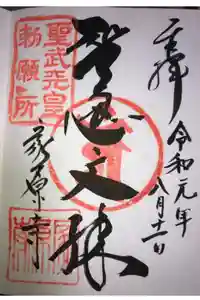 奉拝
令和元年
八月十一日
聖武天皇
勅願所
智恵文殊
家原寺